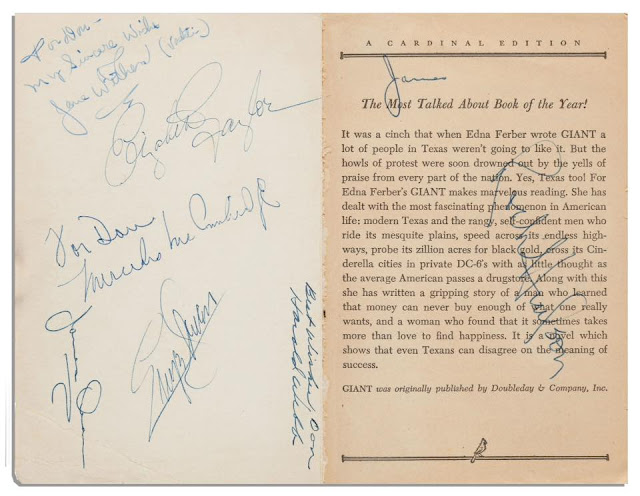 For Don—
My Sincere Wishes
Jane Withers (Vashti)
Elizabeth Taylor
For Don
Mercedes McCambridge
George Stevens
Best Wishes, Don
Harold
A CARDINAL EDITION
James
The Most Talked About Book of the Year!
It was a cinch that when Edna Ferber wrote GIANT a
lot of people in Texas weren't going to like it. But the
howls of protest were soon drowned out by the yells of
praise from every part of the nation. Yes, Texas too! For
Edna Ferber's GIANT makes marvelous reading. She has
dealt with the most fascinating phenomenon in American
life: modern Texas and the rangy, self-confident men who
ride its mesquite plains, speed across its endless high-
ways, probe its zillion acres for black gold, cross its Cin-
derella cities in private DC-6's with as little thought as
the average American passes a drugstore. Along with this
she has written a gripping story of a man who learned
that money can never buy enough of what one really
wants, and a woman who found that it sometimes takes
more than love to find happiness. It is a novel which
shows that even Texans can disagree on the meaning of
success.
Rock Hudson
GIANT was originally published by Doubleday & Company, Inc.